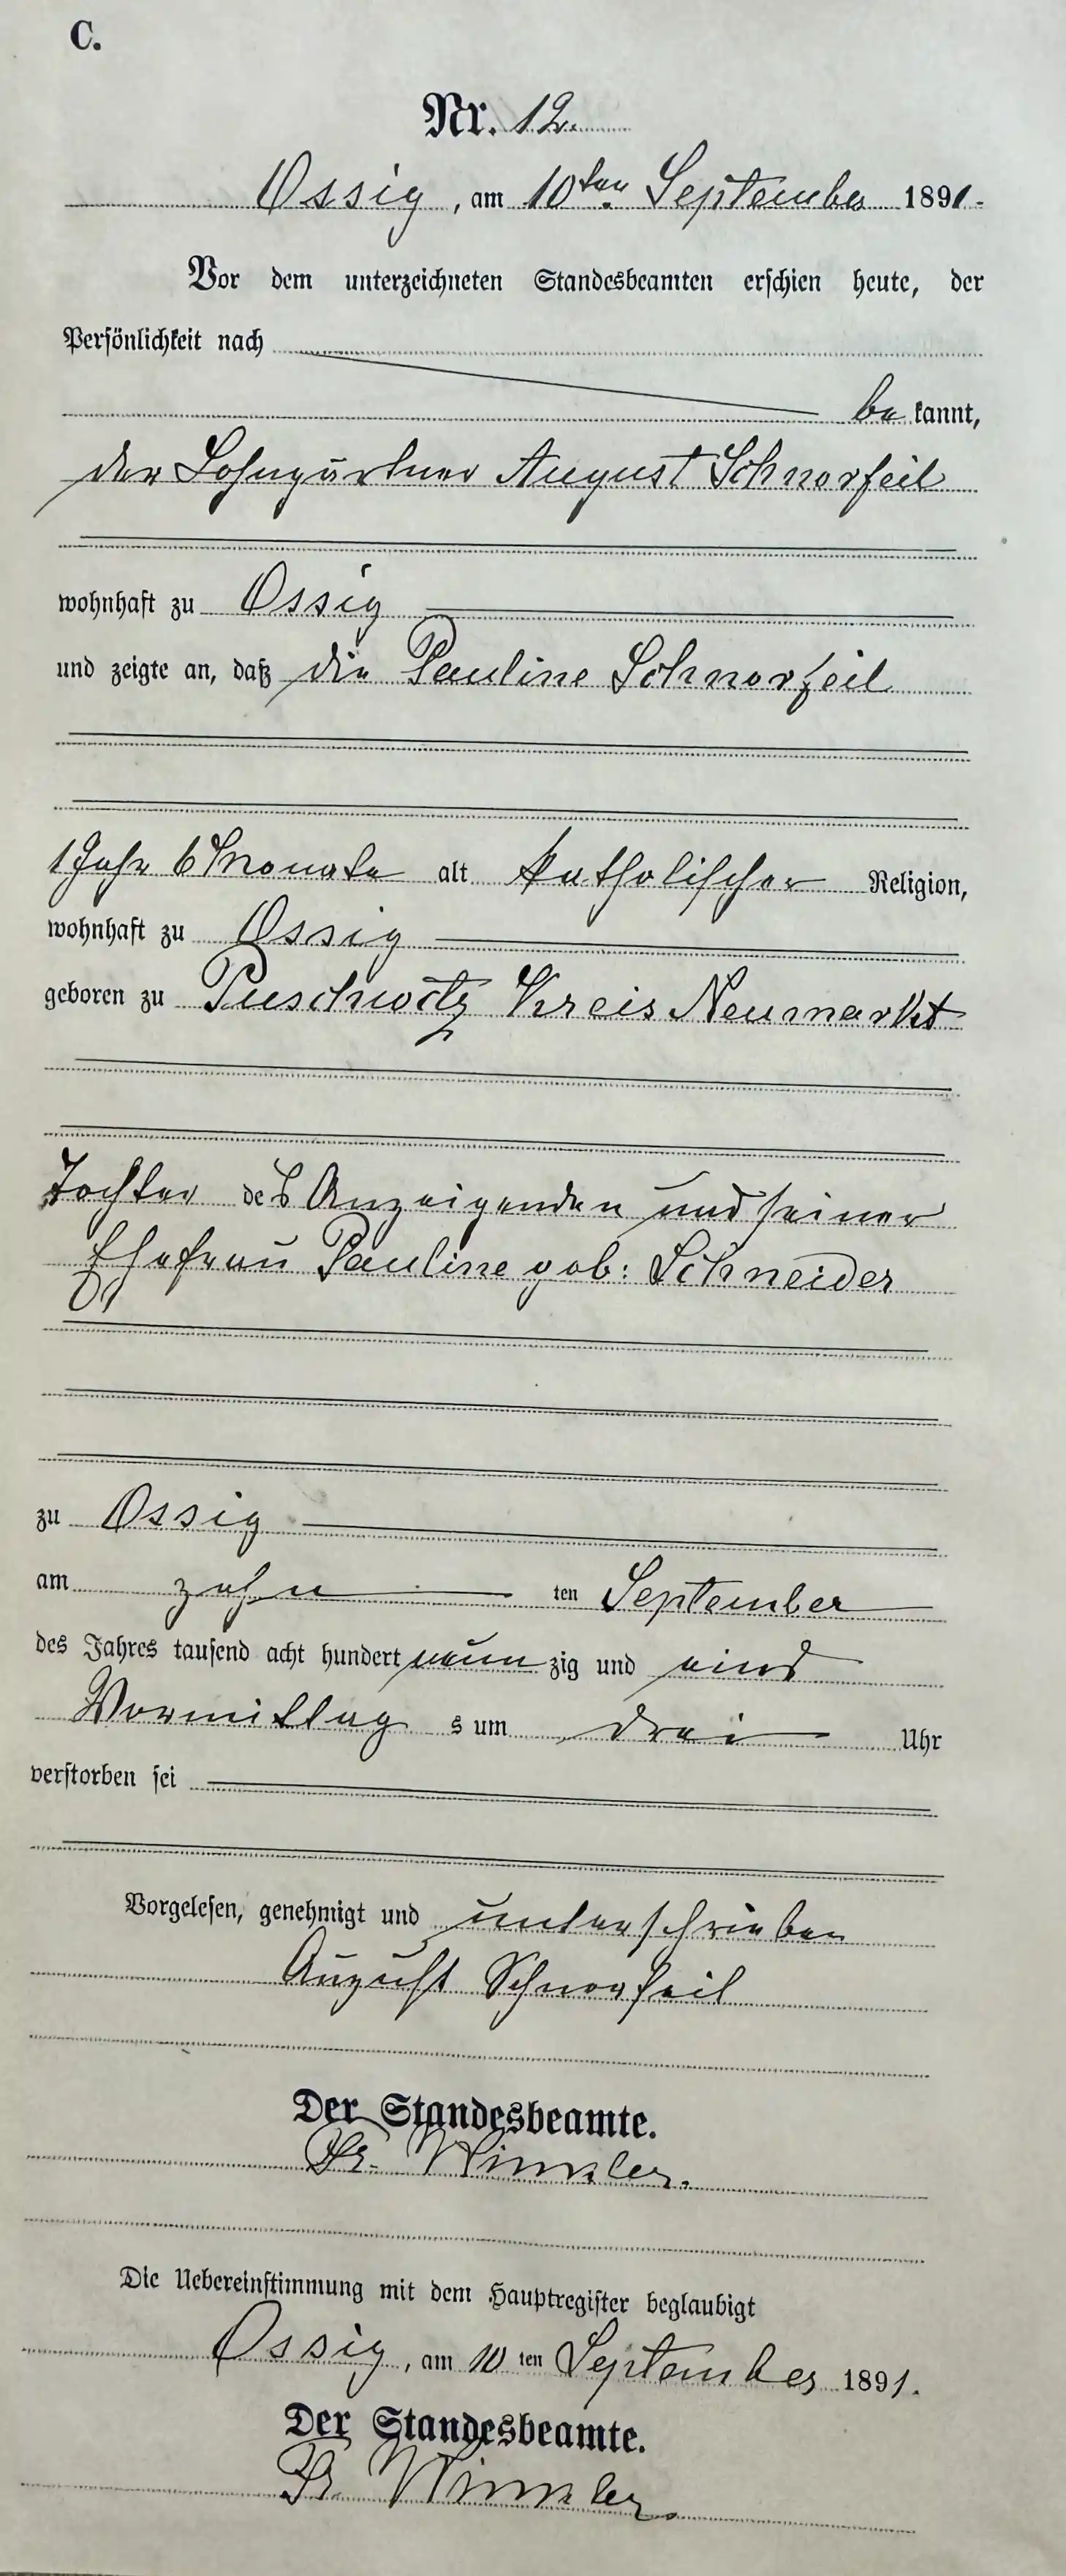 C.
Nr. 12.
Ossig, am 10ten September 1891.
Vor dem unterzeichneten Standesbeamten erschien heute, der
Persönlichkeit nach
be kannt,
der Lohngärtner August Schnorfeil
wohnhaft zu Ossig
und zeigte an, daß die Pauline Schnorfeil
1 Jahr 6 Monate alt katholischer Religion,
wohnhaft zu Ossig
geboren zu Puschwitz Kreis Neumarkt
Tochter des Anzeigenden und seiner
Ehefrau Pauline geb: Schneider
zu Ossig
am zehn ten September
des Jahres tausend acht hundert neun zig und eins
Vormittag s um drei Uhr
verstorben sei
Vorgelesen, genehmigt und unterschrieben
August Schnorfeil
Der Standesbeamte.
Winkler.
Die Uebereinstimmung mit dem Hauptregister beglaubigt
Ossig, am 10 ten September 1891.
Der Standesbeamte.
Winkler.